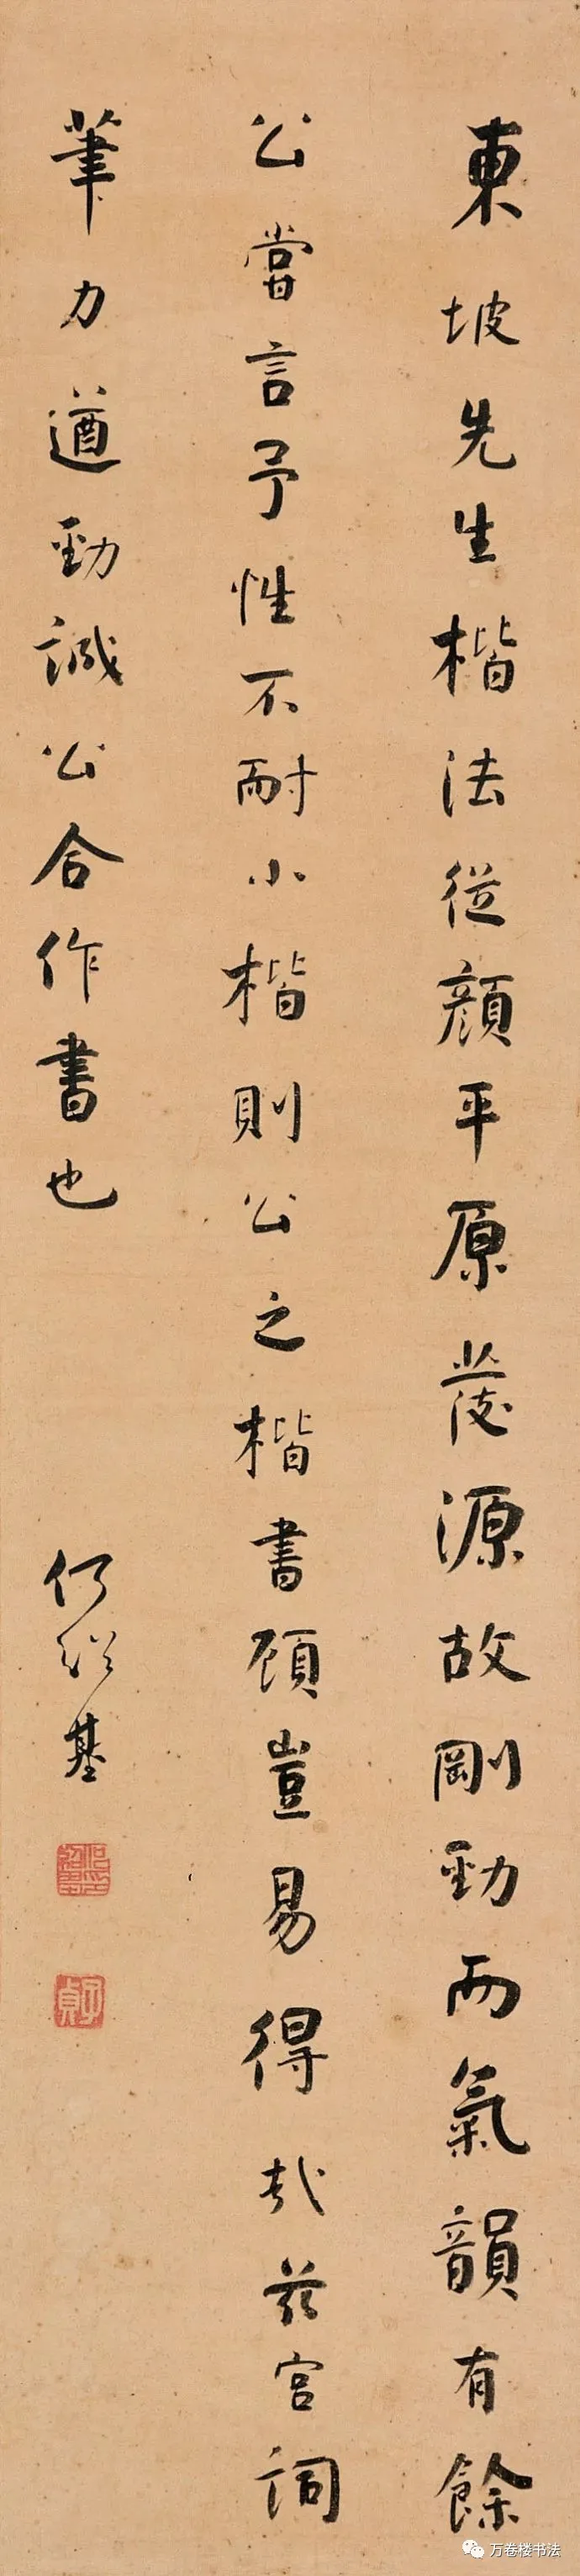 東坡先生楷法從顔平原發源故剛勁而氣韻有餘
公嘗言予性不耐小楷則公之楷書顧豈易得哉茲宮詞
筆力遒勁誠公合作書也
何紹基
子貞
万卷楼书法